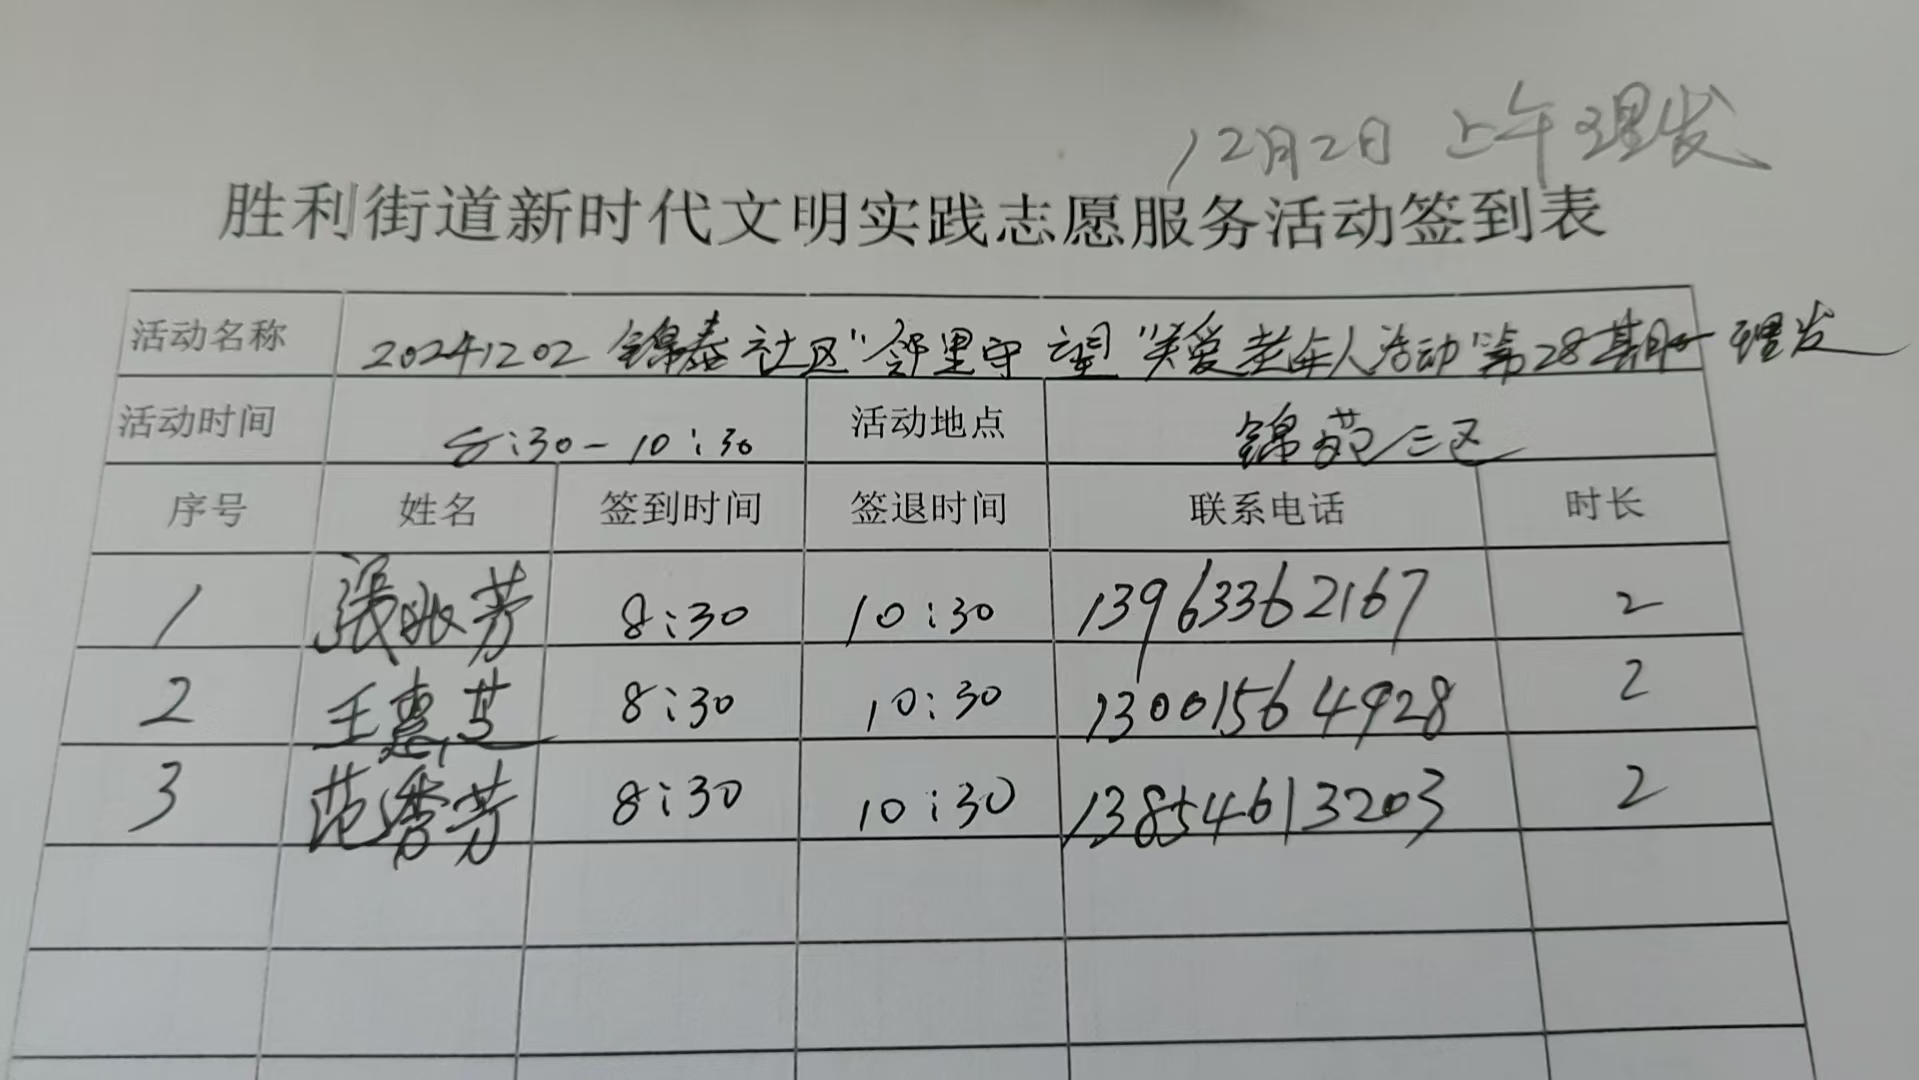 12月2日 上午理发
胜利街道新时代文明实践志愿服务活动签到表
活动名称 20241202锦泰社区"邻里守望"关爱老年人活动"第28期 理发
活动时间 8:30-10:30 活动地点 锦苑三区
序号 姓名 签到时间 签退时间 联系电话 时长
1 张 芳 8:30 10:30 13963362167 2
2 王惠芝 8:30 10:30 13001564928 2
3 范秀芳 8:30 10:30 13854613203 2